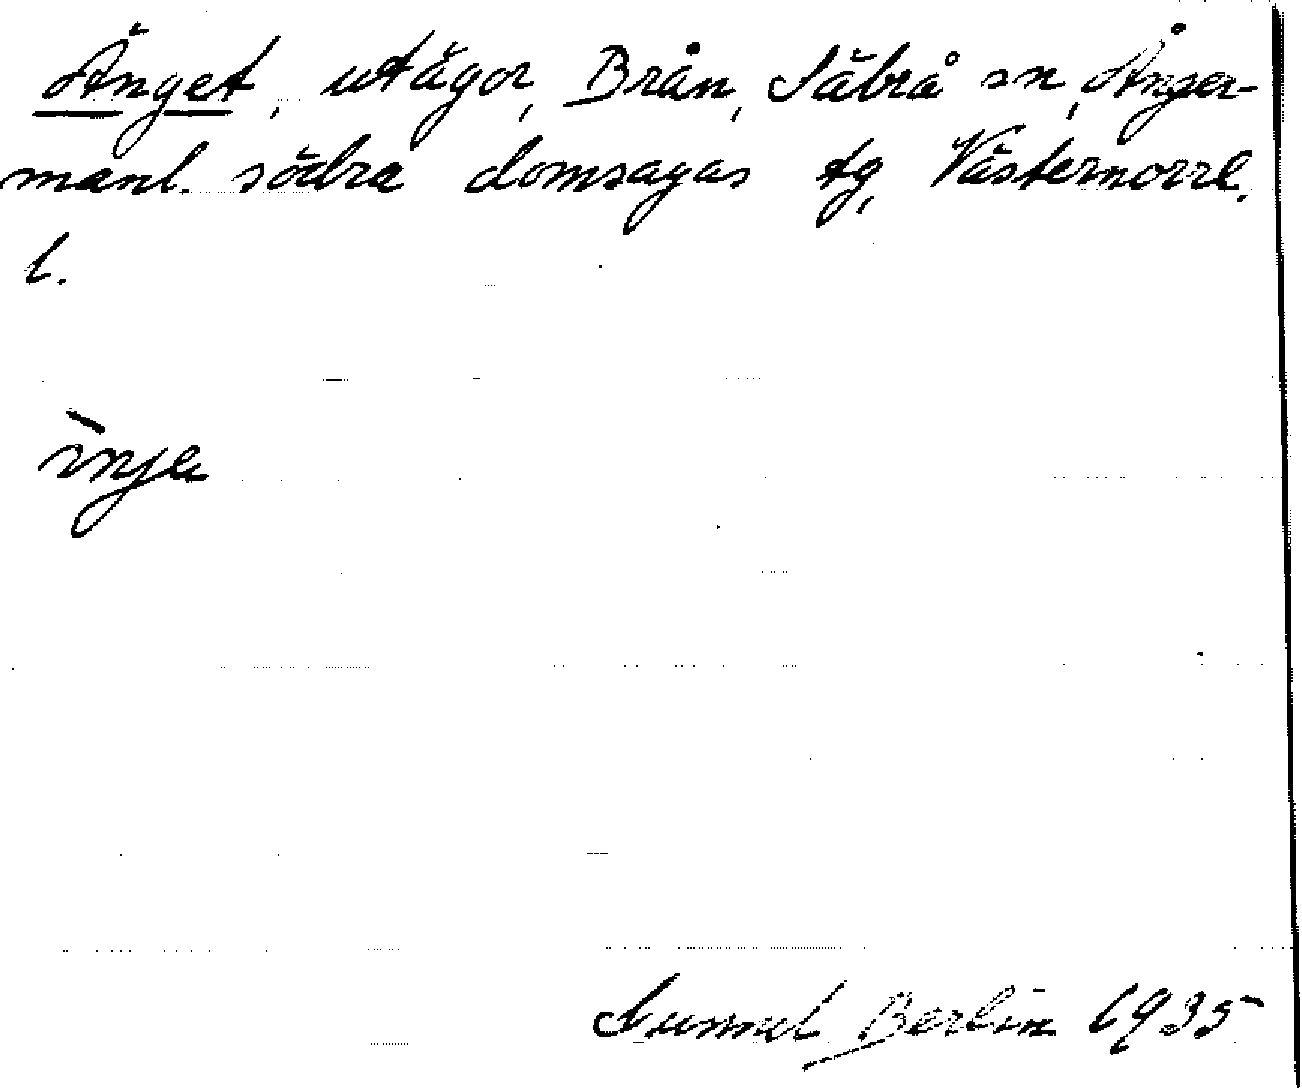 Änget, utägor, Brån, Säbrå sn, Ånger-
manl. södra domsagas tg, Västernorrl.
l.
ìnja
Gunnel Berlin 1935